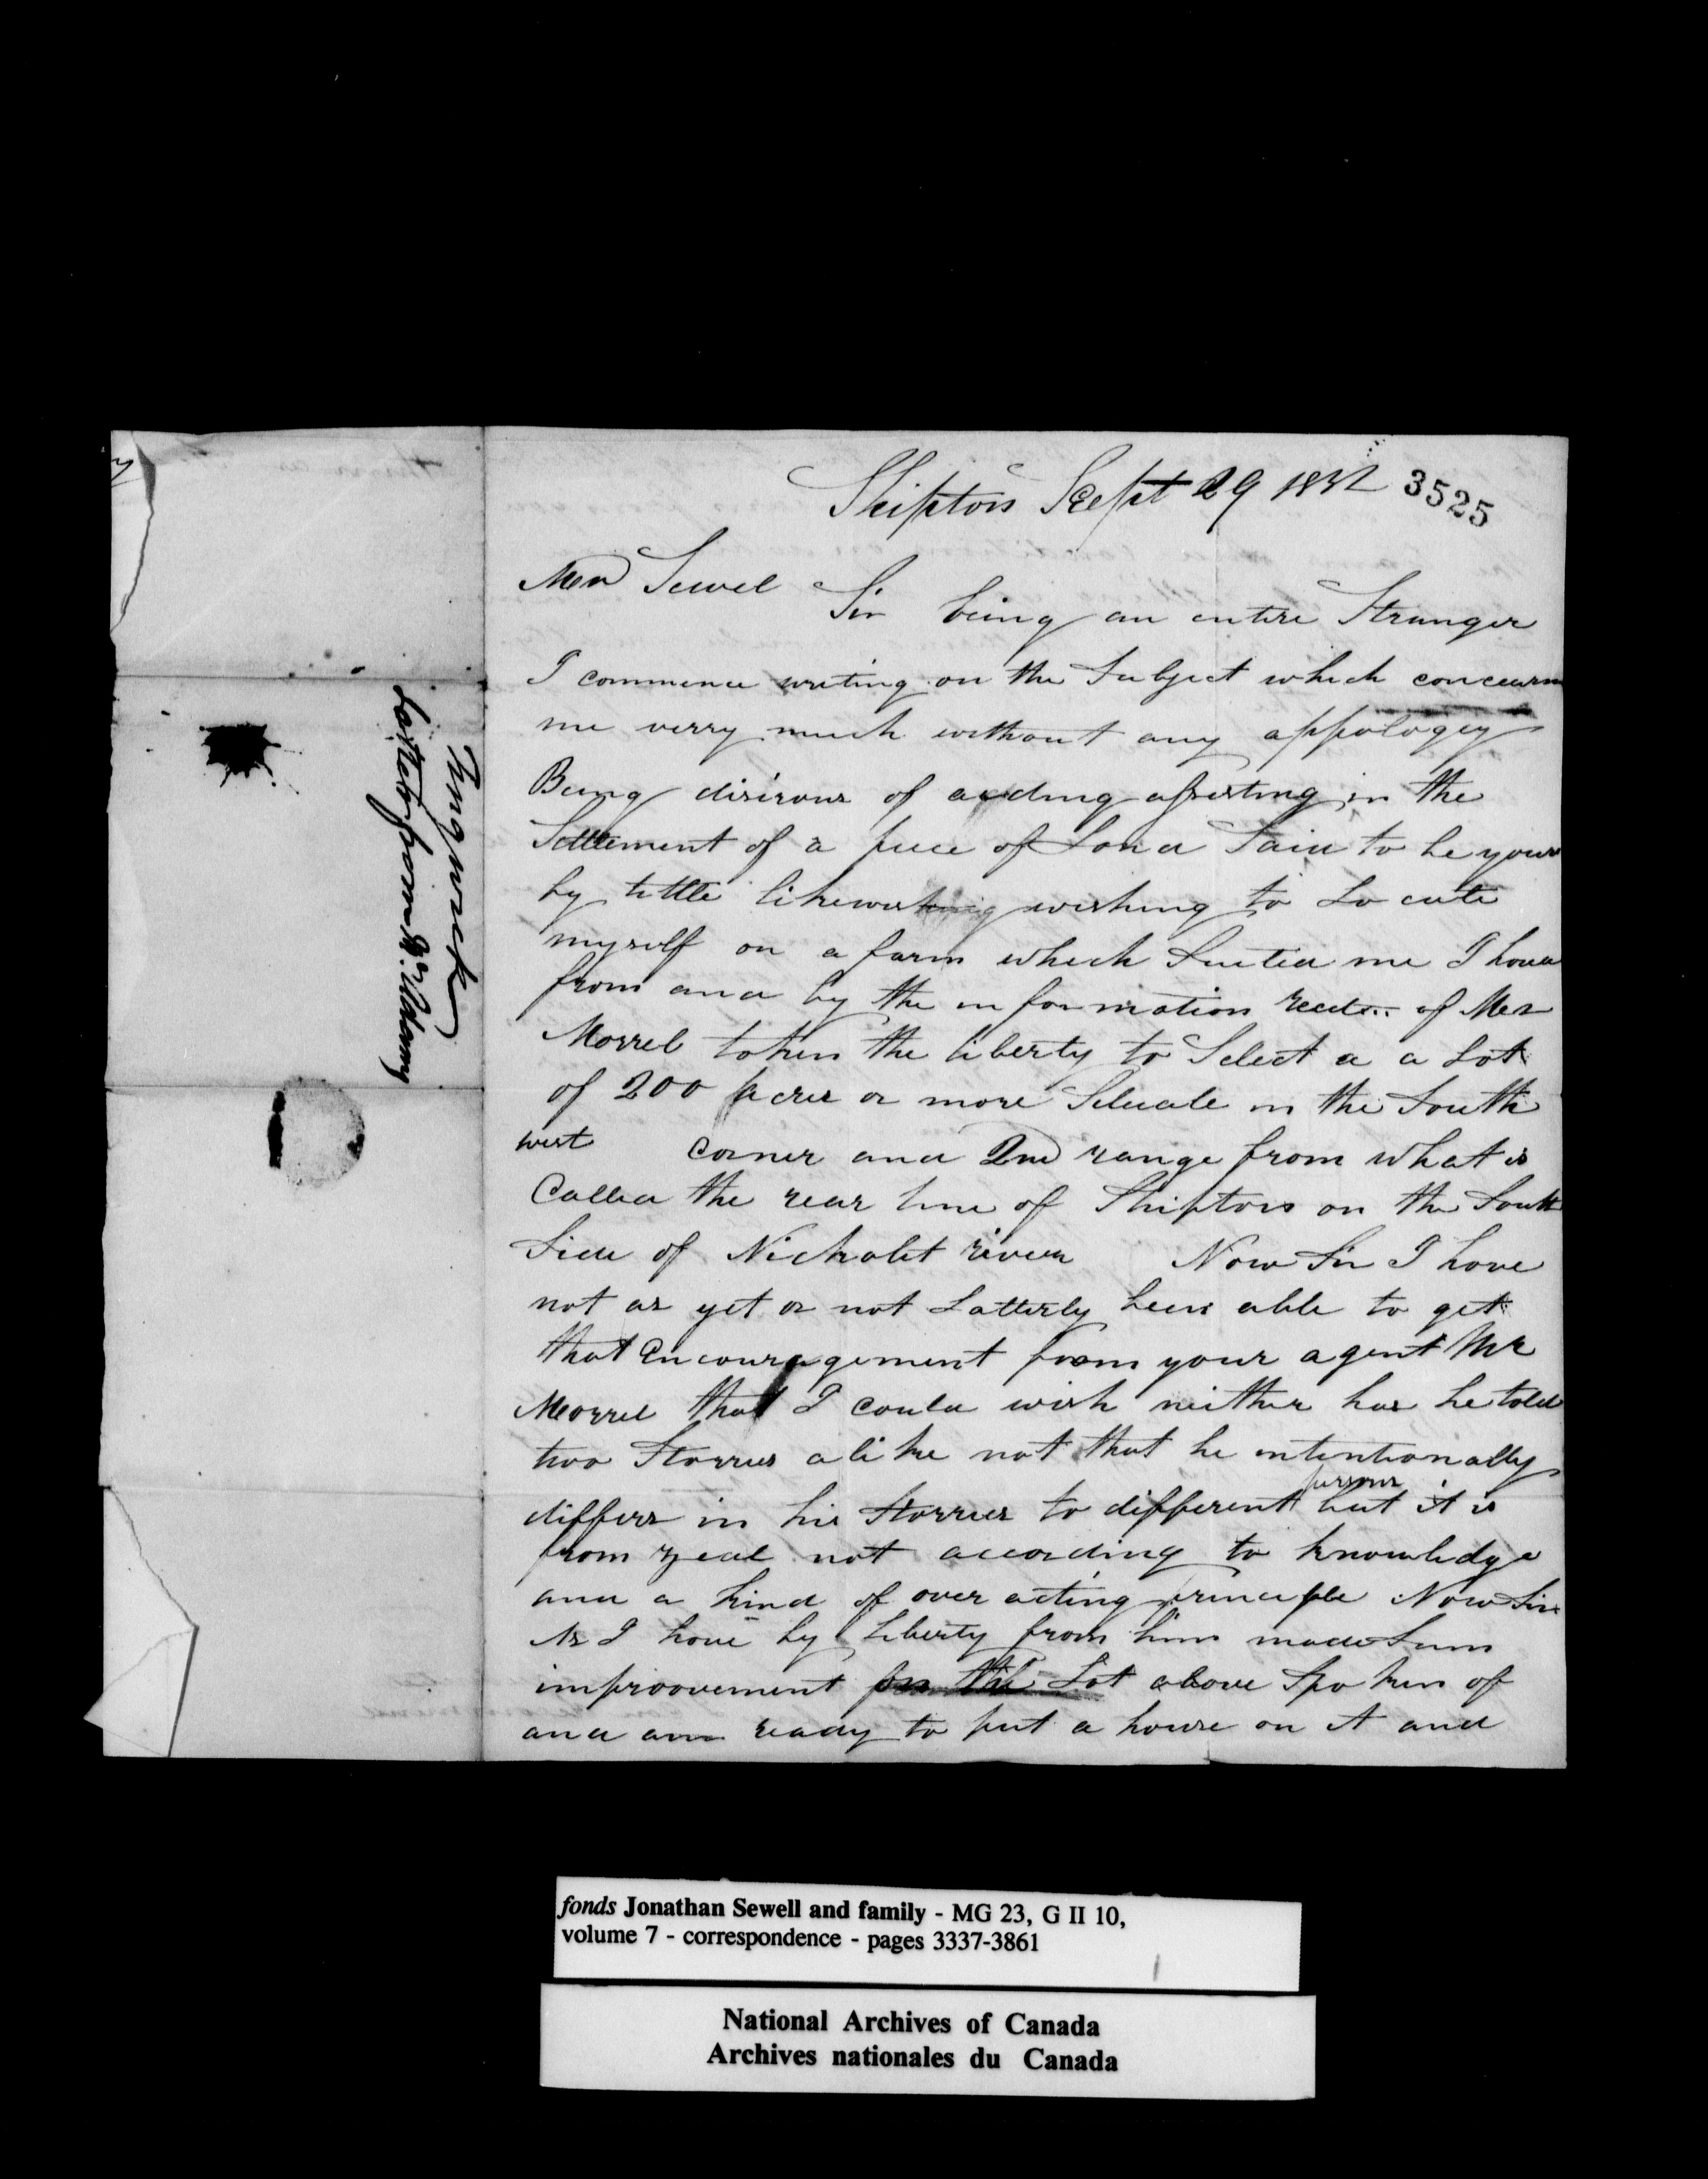 Shipton Sept 29 1832 3525
Mer Sewel Sir being an entire Stranger
I commence writing on the Subject which concearns
me verry much without any appologey
Being disirous of aeding assisting in the
Settlement of a piece of Land Said to be yours
by tittle likewise wishing to Locate
myself on a farm which Suited me I have
from and by the information recd.. of Mer
Morrel taken the liberty to Select a a Lot
of 200 Acres or more Situate in the South
west corner and 2nd range from what is
Called the rear line of Shipton on the South
Side of Nicholet river Now Sir I have
not as yet or not Latterly been able to get
that Encouragement from your agent Mr
Morrel that I could wish neither has he told
two Storries alike not that he intentionally
differs in his Storries to different persons but it is
from zeal not according to knowledge
and a kind of over acting principle Now Sir
As I have by Liberty from him made Sum
improovement on the Lot above Spoken of
and am ready to put a house on it and
Tingwick
Letter from
fonds Jonathan Sewell and family - MG 23, G II 10,
volume 7 - correspondence - pages 3337-3861
National Archives of Canada
Archives nationales du Canada